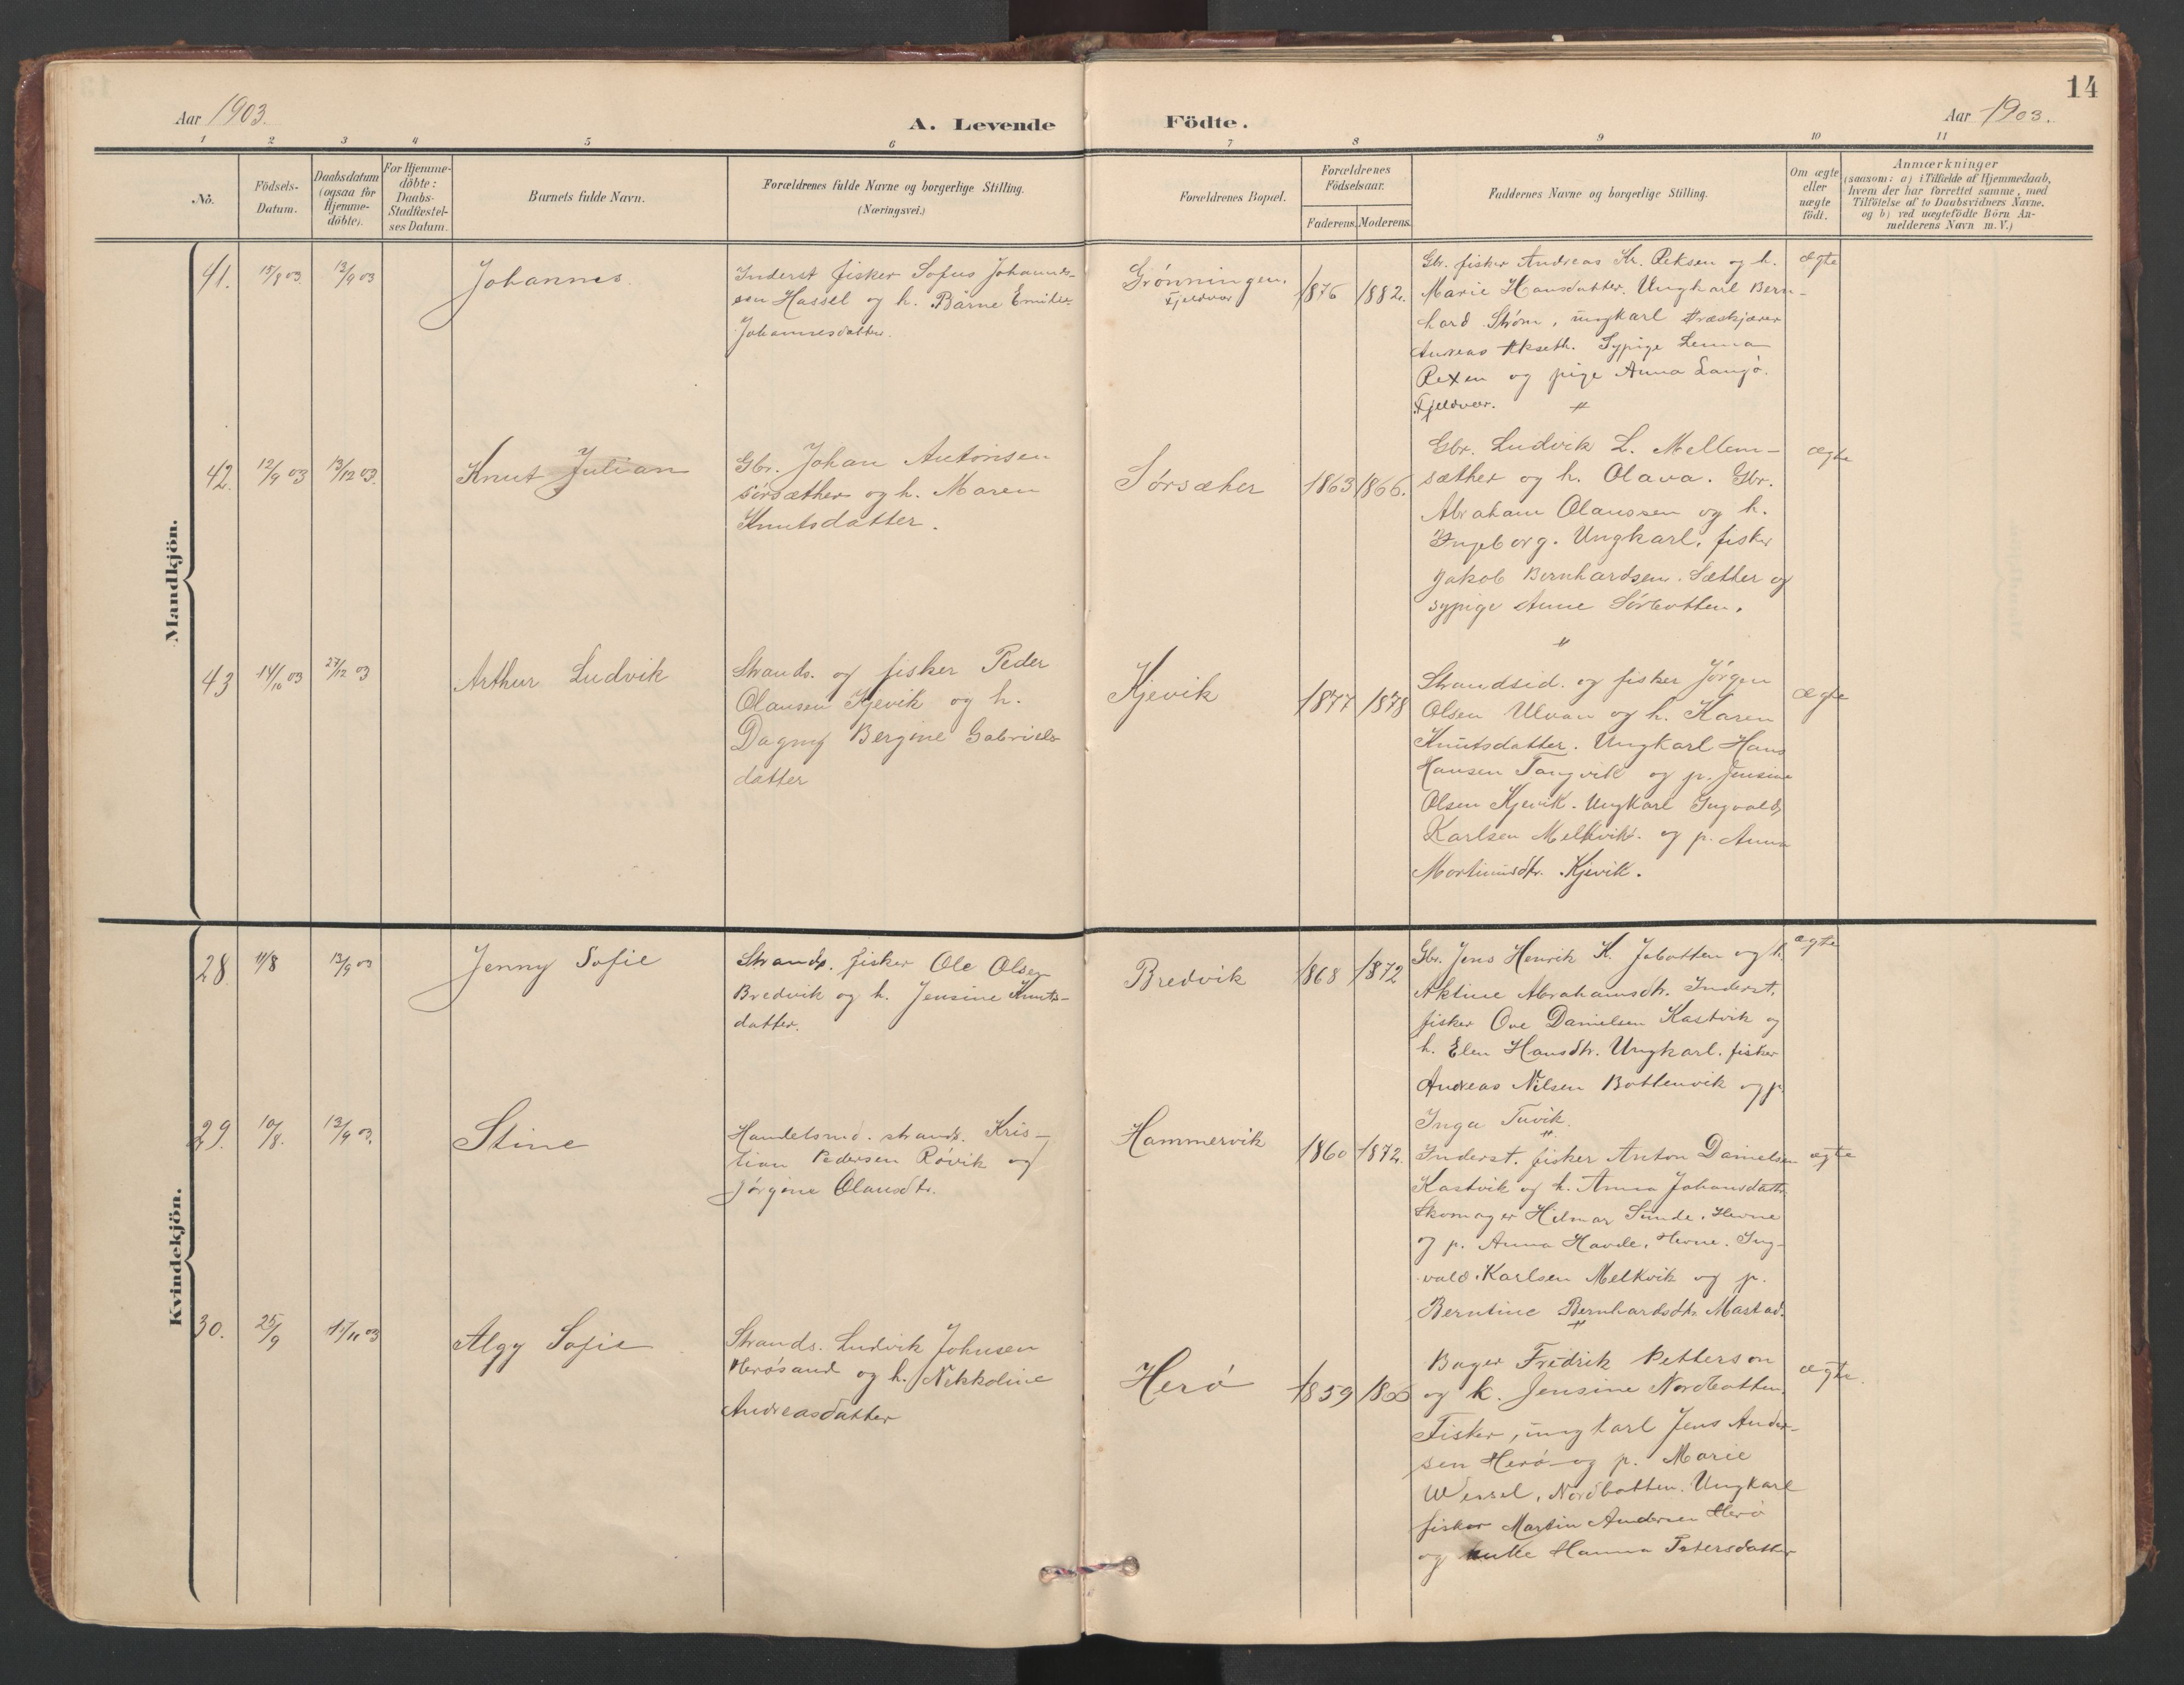 14
Aar 1903.
A. Levende Födte.
Aar 1903.
1 2 3 4 5 6 7 8 9 10 11
No.
Födsels-
Datum.
Daabsdatum
(ogsaa for
Hjemme-
döbte).
For Hjemme-
döbte:
Daabs-
Stadfæstel-
ses Datum.
Barnets fulde Navn.
Forældrenes fulde Navne og borgerlige Stilling.
(Næringsvei.)
Forældrenes Bopæl.
Forældrenes
Födselsaar.
Faderens. Moderens.
Faddernes Navne og borgerlige Stilling.
Om ægte
eller
uægte
födt.
Anmærkninger
(saasom: a) i Tilfælde af Hjemmedaab,
hvem der har forrettet samme, med
Tilföielse af to Daabsvidners Navne,
og b) ved uægtefödte Börn An-
melderens Navn m. V.)
Mandkjön.
41.
15/8 03
13/9 03
Johannes
Inderst fisker Sofus Johannes-
sen Hassel og h. Barne Emilie
Johannesdatter.
Grønningen,
Fjeldvær
1876
1882.
Gbr. fisker Andreas Kr. Reksen og h.
Marie Hansdatter. Ungkarl Bern-
hard Strøm, ungkarl træskjærer
Andreas Akseth. Sypige Lenna
Rexen og pige Anna Langø.
Fjeldvær. "
ægte
42.
12/9 03
13/12 03.
Knut Julian
Gbr. Johan Antonsen
Sørsæther og h. Maren
Knutsdatter.
Sørsæher
1863
1866.
Gbr. Ludvik L. Mellem-
sæther og h. Olava. Gbr.
Abraham Olaussen og h.
Ingeborg. Ungkarl, fisker
Jakob Bernhardsen Sætther og
sypige Anne Sørbotten.
"
ægte
43
14/10 03
27/12 03
Arthur Ludvik
Strands. og fisker Peder
Olausen Kjevik og h.
Dagny Bergine Gabriels-
datter
Kjevik
1877
1878
Strandsid. og fisker Jørgen
Olsen Ulvan og h. Karen
Knutsdatter. Ungkarl Hans
Hansen Tangvik og p. Jensine
Olsen Kjevik. Ungkarl Ingvald
Karlsen Melkvik. og p. Anna
Mortinusdtr. Kjevik.
ægte
Kvindekjön.
28.
11/8
13/9 03
Jenny Sofie
Strands. fisker Ole Olsen
Bredvik og h. Jensine Knuts-
datter.
Bredvik
1868
1872
Gbr. Jens Henrik K. Jøbotten og h.
Aktine Abrahamsdtr. Inderst,
fisker Ove Danielsen Kastvik og
h. Elen Hansdtr. Ungkarl. fisker
Andreas Nilsen Bottenvik og p.
Inga Tuvik.
"
ægte
29.
10/8.
13/9 03.
Stine
Handelsmd. strands. Kris-
tian Pedersen Røvik og
Jørgine Olausdtr.
Hammervik
1860
1872.
Inderst. fisker Anton Danielsen
Kastvik og h. Anna Johansdatter
Skomager Hilmar Sunde, Hevne
og p. Anna Havde, Hevne. Ing-
vald Karlsen Melkvik og p.
Berntine Bernhardsdtr. Mastad.
"
ægte
30.
25/9
1/11 03
Algy Sofie
Strands. Ludvik Johnsen
Herøsund og h. Nikkoline
Andreasdatter
Herø
1859
Bager Fredrik Petterson
og k. Jensine Nordbotten,
Fisker, ungkarl Jens Ander-
sen Herø og p. Marie
Wessel, Nordbotten. Ungkarl
fisker Martin Andersen Herø
og enke Hanna Petersdatter
ægte.